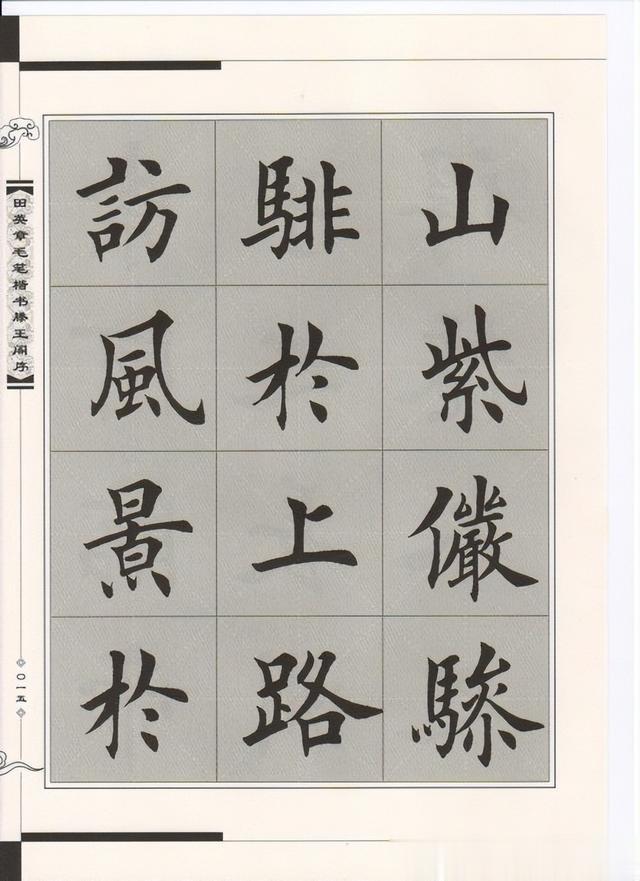 山紫儼驂
騑於上路
訪風景於
田英章毛笔楷书滕王阁序
〇一五